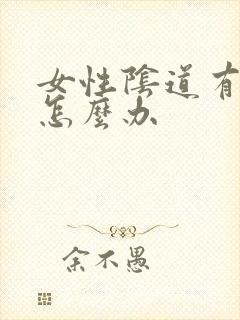 女性陰道有
怎麼办
余不愚